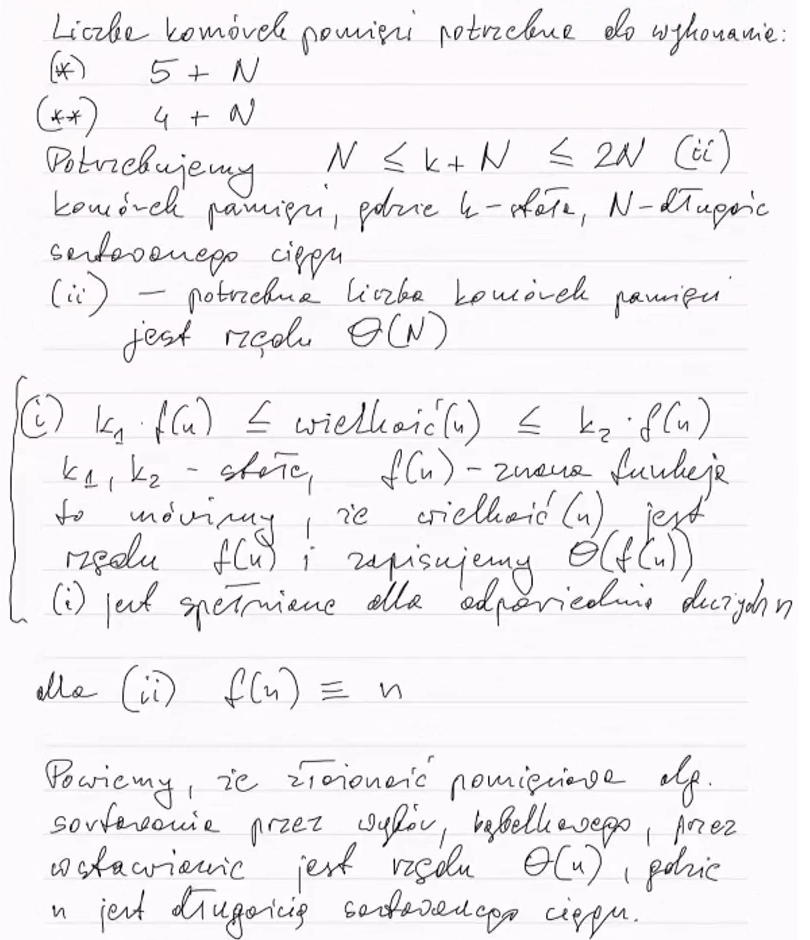 Liczba komórek pamięci potrzebna do wykonania:
(*) 5 + N
(**) 4 + N
Potrzebujemy N ≤ k + N ≤ 2N (ii)
komórek pamięci, gdzie k - stała, N - długość
sortowanego ciągu
(ii) — potrzebna liczba komórek pamięci
jest rzędu Θ(N)
(i) k₁ · f(n) ≤ wielkość(n) ≤ k₂ · f(n)
k₁, k₂ - stałe, f(n) - znana funkcja
to mówimy, że wielkość(n) jest
rzędu f(n) i zapisujemy Θ(f(n))
(i) jest spełnione dla odpowiednio dużych n
dla (ii) f(n) ≡ n
Powiemy, że złożoność pamięciowa alg.
sortowania przez wybór, bąbelkowego, przez
wstawianie jest rzędu Θ(n), gdzie
n jest długością sortowanego ciągu.